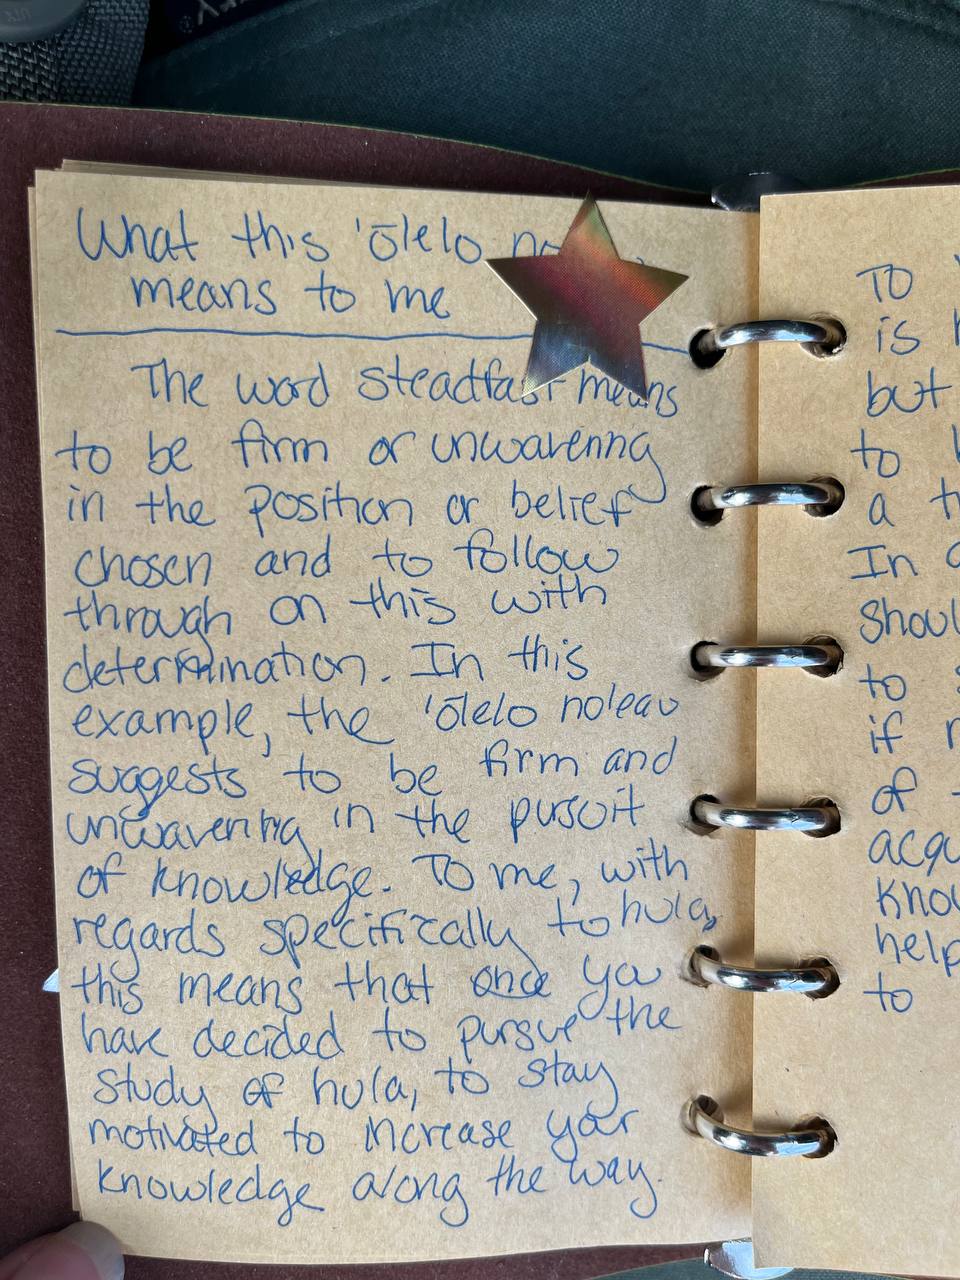 What this 'ōlelo
means to me
The word steadfast means
to be firm or unwavering
in the position or belief
chosen and to follow
through on this with
determination. In this
example, the 'ōlelo no'eau
suggests to be firm and
unwavering in the pursuit
of knowledge. To me, with
regards specifically to hula,
this means that once you
have decided to pursue the
study of hula, to stay
motivated to increase your
knowledge along the way.
To
is
but
to
a
In
to
if
of
help
to